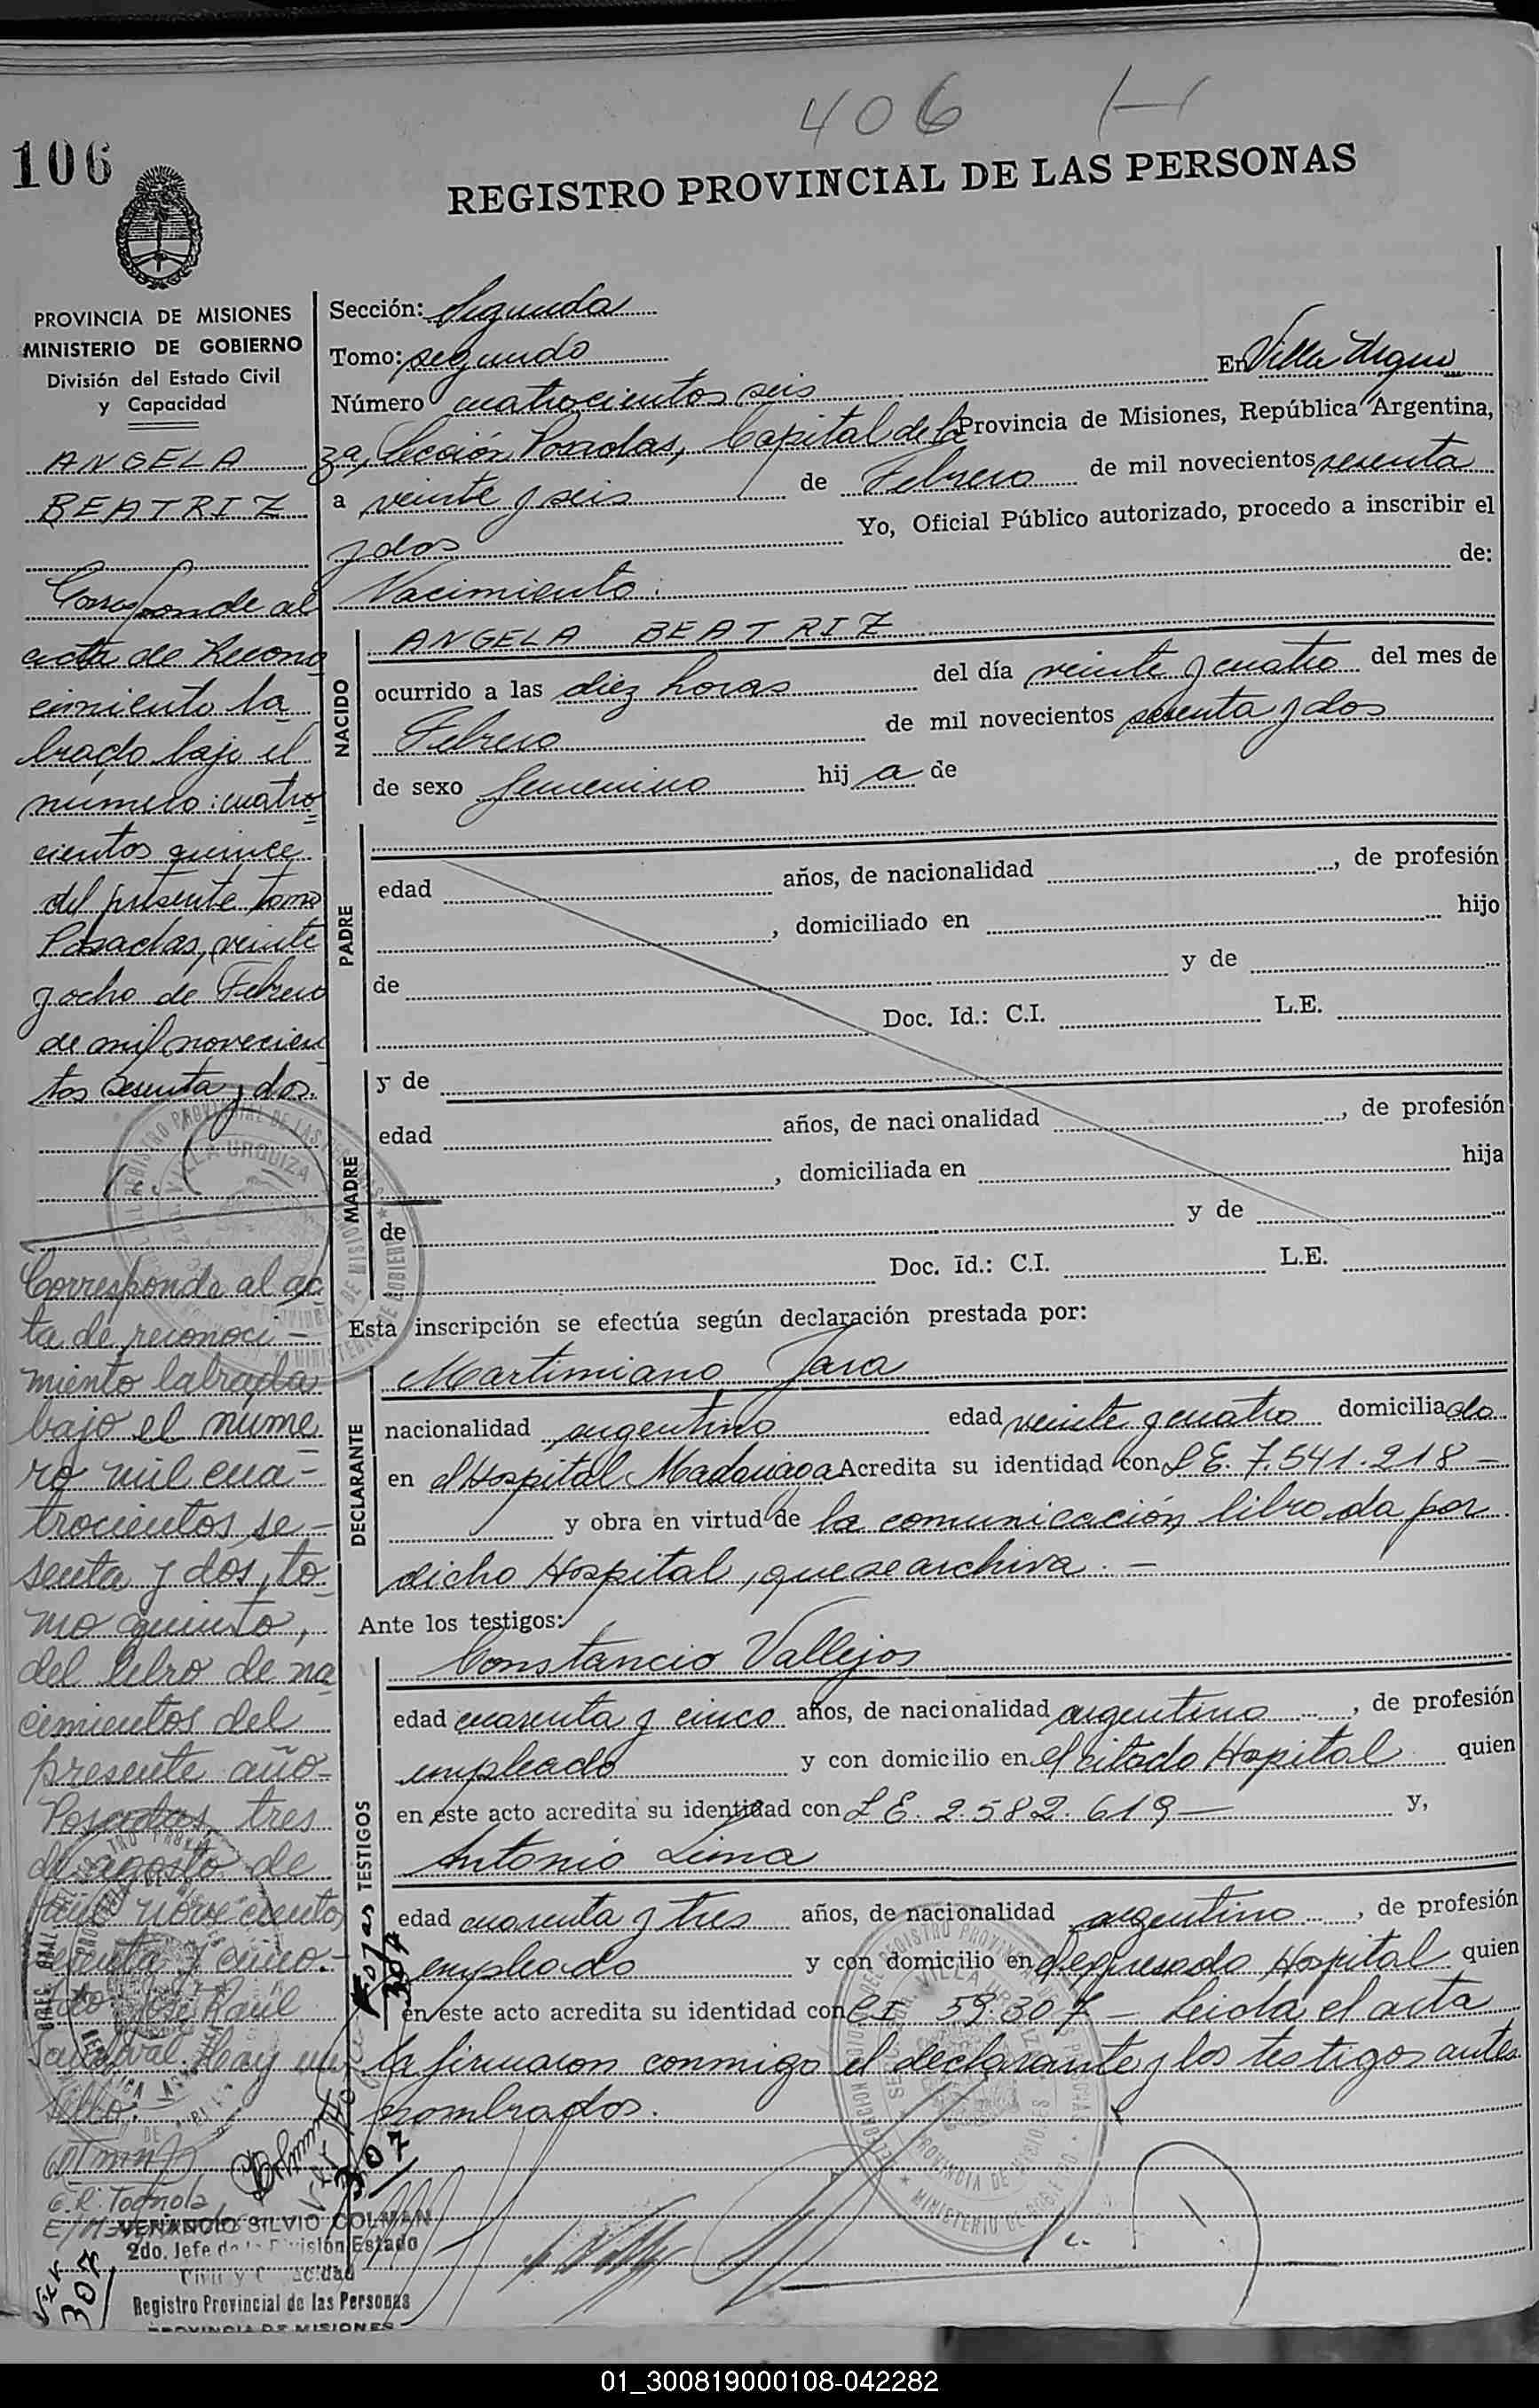 406
106
REGISTRO PROVINCIAL DE LAS PERSONAS
PROVINCIA DE MISIONES
MINISTERIO DE GOBIERNO
División del Estado Civil
y Capacidad
ANGELA
BEATRIZ
Corresponde al
acta de Recono
cimiento la
brado bajo el
número: cuatro
cientos quince
del presente tomo
Posadas, veinte
y ocho de Febrero
de mil novecien
tos sesenta y dos.
Corresponde al ac
ta de reconoci-
miento labrada
bajo el núme
ro mil cua-
trocientos se-
senta y dos, to-
mo quinto,
del libro de na
cimientos del
presente año-
Posadas, tres
de agosto de
mil novecientos
sesenta y cinco.-
José Raúl
Sandoval. Hay un
sello.
E. R. Tognola
VENANCIO SILVIO COLMAN
2do. Jefe de la División Estado
Civil y Capacidad
Registro Provincial de las Personas
PROVINCIA DE MISIONES
Sección: Segunda
Tomo: segundo
Número cuatrocientos seis En Villa Urqui
za, Sección Posadas, Capital de la Provincia de Misiones, República Argentina,
a veinte y seis de Febrero de mil novecientos sesenta
y dos Yo, Oficial Público autorizado, procedo a inscribir el
Nacimiento. de:
NACIDO
ANGELA BEATRIZ
ocurrido a las diez horas del día veinte y cuatro del mes de
Febrero de mil novecientos sesenta y dos
de sexo femenino hij a de
PADRE
edad años, de nacionalidad , de profesión
, domiciliado en hijo
de y de
Doc. Id.: C.I. L.E.
MADRE
y de
edad años, de nacionalidad , de profesión
, domiciliada en hija
de y de
Doc. Id.: C.I. L.E.
Esta inscripción se efectúa según declaración prestada por:
DECLARANTE
Martimiano Jara
nacionalidad argentino edad veinte y cuatro domiciliado
en el Hospital Madariaga Acredita su identidad con L E. 7.541.218-
y obra en virtud de la comunicación librada por
dicho Hospital, que se archiva.-
Ante los testigos:
TESTIGOS
Constancio Vallejos
edad cuarenta y cinco años, de nacionalidad argentino , de profesión
empleado y con domicilio en el citado Hopital quien
en este acto acredita su identidad con L E. 2.582.619- y,
Antonio Lima
edad cuarenta y tres años, de nacionalidad argentino , de profesión
empleado y con domicilio en el expresado Hospital quien
en este acto acredita su identidad con C I 59.307- Leida el acta
la firmaron conmigo el declarante y los testigos antes
nombrados.
Fojas
307
307
307
01_300819000108-042282